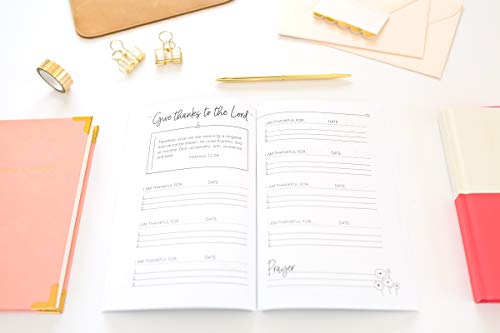 Give thanks to the Lord
Therefore, since we are receiving a kingdom
that cannot be shaken, let us be thankful, and
so worship God acceptably with reverence
and awe.
Hebrews 12:28
I AM THANKFUL FOR: DATE:
1.
2.
3.
I AM THANKFUL FOR: DATE:
1.
2.
3.
I AM THANKFUL FOR: DATE:
1.
2.
3.
I AM THANKFUL FOR: DATE:
1.
2.
3.
I AM THANKFUL FOR: DATE:
1.
2.
3.
I AM THANKFUL FOR: DATE:
1.
2.
3.
I AM THANKFUL FOR: DATE:
1.
2.
3.
Prayer